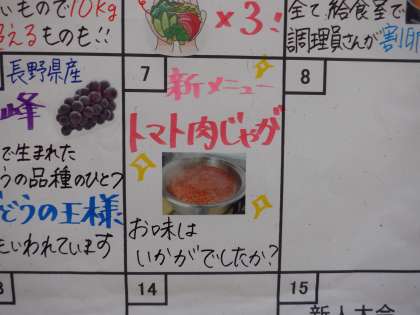 いもので10kg
超えるものも!!
×3!
全て、給食室で
調理員さんが割
長野県産
峰
で生まれた
うの品種のひとつ
どうの王様
といわれています
7
新メニュー
トマト肉じゃが
お味は
いかがでしたか?
8
14
15
新人大会